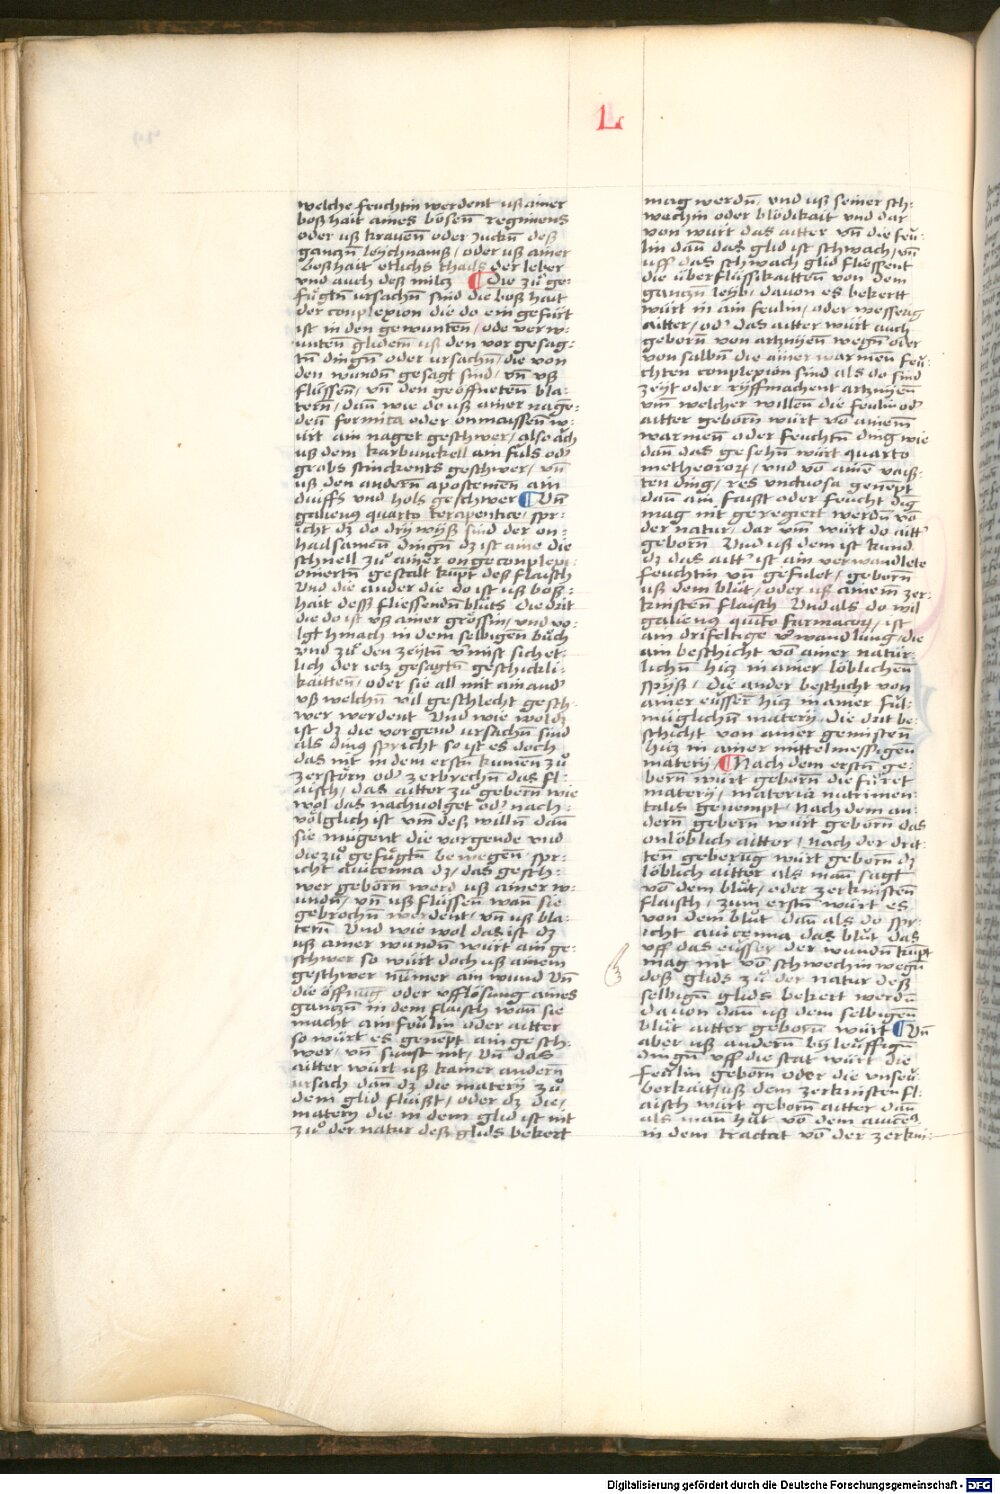 L
welche feuchtin werdent uß ainer
boßhait aines bösen̄ regimens
oder uß krauen̄ oder Juckn̄ deß
gancʒn̄ leychnamß / oder uß ainer
boßhait etlichs thails der leber
vnd auch deß milcʒ ¶ Die zů ge-
fůgtn̄ vrsachn̄ sind die boß hait
der conplexion die do ein gefůrt
ist in den gewunten̄ / ode verw-
unten̄ glidem̄ uß den vor gesag-
tn̄ dingn̄ oder ursachn̄ / die von
den wundn̄ gesagt sind / vn̄ vß
flüssen̄ / vn̄ den geöffneten̄ bla-
tern̄ / dan̄ wie do uß ainer nage-
den̄ formica oder onmaissen̄ w-
ürt ain naget geschwer / also ach
uß dem karbunckell ain fuls od᾽
grobs stinckents geschwer / vn̄
uß den andern̄ apostemen ain
duiffs vnd hols geschwer ¶ Vn̄
galienus quarto terapentice / spr-
icht dʒ do drÿ wÿß sind der on-
hailsamen̄ dingn̄ dʒ ist aine die
schnell zů ainer ongeconplexi-
oniertn̄ gestalt kumpt deß flaisch
Vnd die ander die do ist uß boß-
hait deß fliessendn̄ blůts Die drit
die do ist vß ainer grössin / vnd vo-
lgt hinach in dem selbigen bůch
vnd zů den zeytn̄ v᾽mist sich et-
lich der ietʒ gesagtn̄ geschickli-
kaitten̄ / oder sie all mit ain and᾽
vß welchn̄ vil geschlecht gesch-
wer werdent Vnd wie wol dʒ
ist dʒ die vorgend vrsachn̄ sind
als dinꝰ spricht so ist es doch
das nit in dem erstn̄ kumen̄ zů
zerstörn od᾽ zerbrechn̄ das fl-
aisch / das aitter zů gebern̄ wie
wol das nachuolget od᾽ nach-
völglich ist vm̄ deß willn̄ dan̄
sie mügent die vorgende vnd
die zů gefůgtn̄ bewegen̄ spr-
icht auicenna dʒ / das gesch-
wer geborn̄ werd uß ainer w-
undn̄ / vn̄ uß flüssen̄ wan̄ sie
gebrochn̄ werdent / vn̄ uß bla-
tern̄ Vnd wie wol das ist dʒ
uß ainer wundn̄ würt ain ge-
schwer so würt doch uß ainem
geschwer nümer ain wund Vn̄
die öffnūg oder vfflösung aines
gancʒn̄ in dem flaisch wan̄ sie
macht ain feulin oder aitter
so würt es genēpt ain gesch-
wer / vn̄ sunst nit / Vn̄ das
aitter würt uß kainer andern̄
ursach dan dʒ die materÿ zů
dem glid flüßt / oder dʒ die /
matery die in dem glid ist nit
zů der natur deß glids bekert
mag werdn̄ / vnd uß seiner sch-
wechin oder blödikait vnd dar
von würt das aitter vn̄ die feu-
lin dan̄ das glid ist schwach / vn̄
uff das schwach glid fliessent
die überflüssikaitten̄ von dem
gancʒn̄ leyb / dauon es bekertt
würt in ain feulin / oder wesserig
aitter / od᾽ das aitter würt auch
geborn̄ von artʒnÿen̄ wegn̄ oder
von salbn̄ die ainer warmen̄ feu-
chten conplexion sind als do sind
zeyt oder rÿffmachent artʒnÿen̄
vm̄ welcher willen̄ die feulin od᾽
aitter geborn̄ würt vō ainem
warmen̄ oder feuchtn̄ ding wie
dan̄ das gesehn̄ würt quarto
metheororꝝ / vnd vō ainē vaiß-
ten ding / res vnctuosa genēpt
dan̄ ain faißt oder feucht dīg
mag nit geregiert werdn̄ vō
der natur / dar vm̄ würt do aitt᾽
geborn̄ Vnd uß dem ist kund
dʒ das aitt᾽ ist ain verwandlete
feuchtin vn̄ gefulet / geborn̄
uß dem blůt / oder uß ainem̄ zer-
knisten̄ flaisch Vnd als do wil
galienus quīto farmacoꝝ / ist
ain drifeltige v᾽wandlung / die
ain beschicht vō ainer natür-
lichn̄ hicʒ in ainer löblichen̄
spÿß / die ander beschicht von
ainer eüssern̄ hicʒ in ainer ful-
müglichn̄ materÿ / die drit be-
schicht von ainer gemisten̄
hicʒ in ainer mittelmessigen̄
materÿ / ¶ Nach dem erstn̄ ge-
bern̄ würt geborn̄ die fůret
materÿ / materia nutrimen-
talis genempt / Nach dem an-
dern̄ gebern̄ würt geborn̄ das
onlöblich aitter / nach der drit-
ten̄ geberūg würt geborn̄ dʒ
löblich aitter als man̄ sagt
vō dem blůt / oder zerknisten̄
flaisch / zum erstn̄ würt es
von dem blůt dan̄ als do spr-
icht auicenna das blůt das
vff das eüsser der wundn̄ kūpt
mag nit vō schwechin wegn̄
deß glids zů der natur deß
selbign̄ glids bekert werdn̄
dauon dan̄ uß dem selbigen̄
blůt aitter geborn̄ würt ¶ Vn̄
aber uß andern̄ bÿleuffign̄
dingn̄ vff die stat würt die
feulin geborn̄ oder die vnseu-
berkait / uß dem zerknisten fl-
aisch würt geborn̄ aitter dan̄
als man̄ hat vō dem auicēa
in dem tractat vō der zerkni-
Digitalisierung gefördert durch die Deutsche Forschungsgemeinschaft - DFG